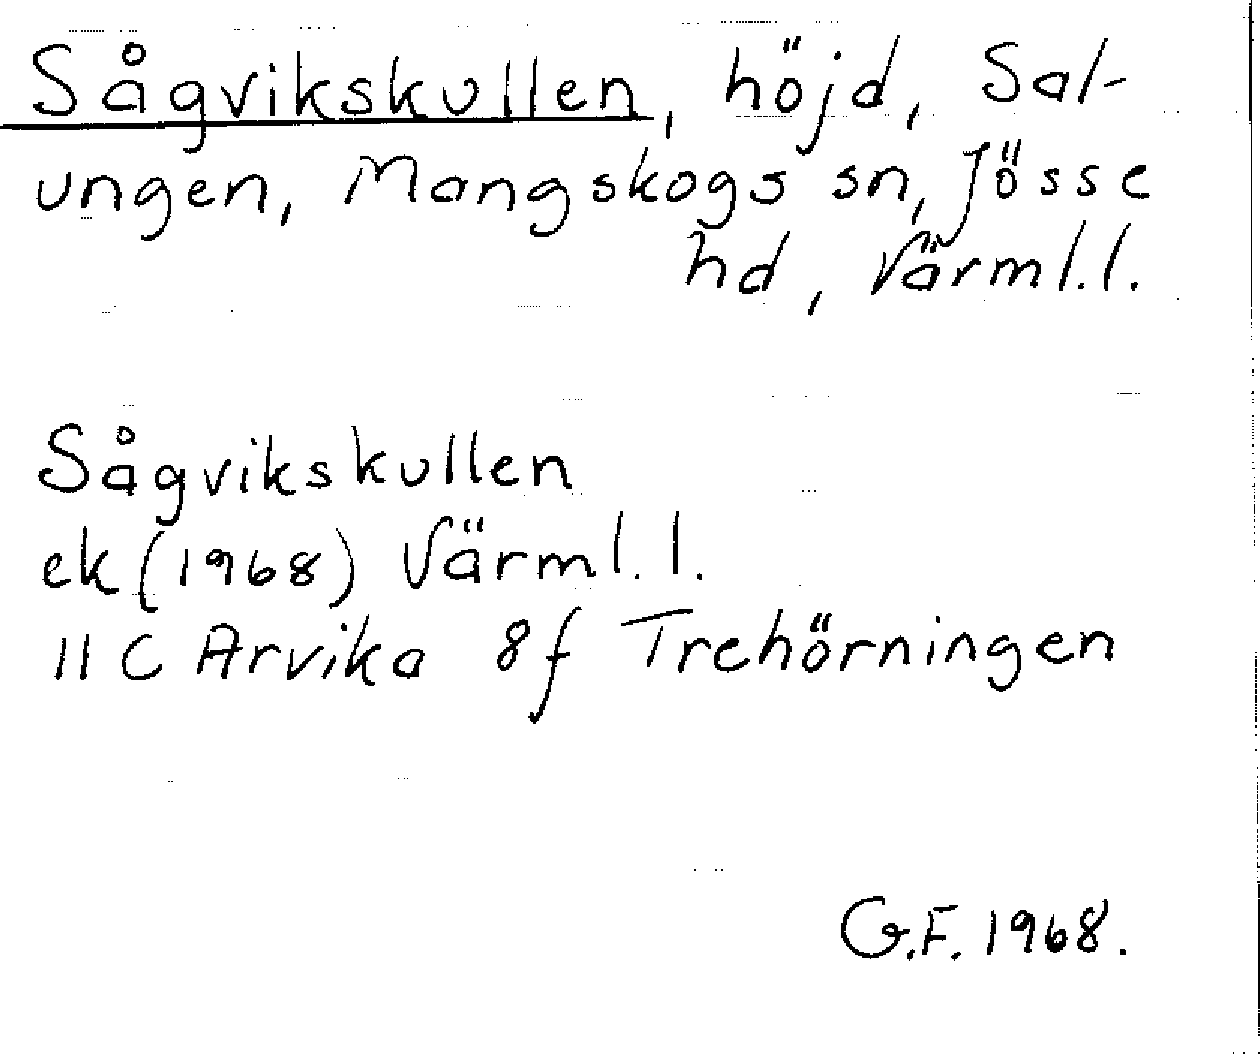 Sågvikskullen, höjd, Sal-
ungen, Mangskogs sn, Jösse
hd, Värml.l.
Sågvikskullen
ek (1968) Värml.l.
11 C Arvika 8f Trehörningen
G.F. 1968.